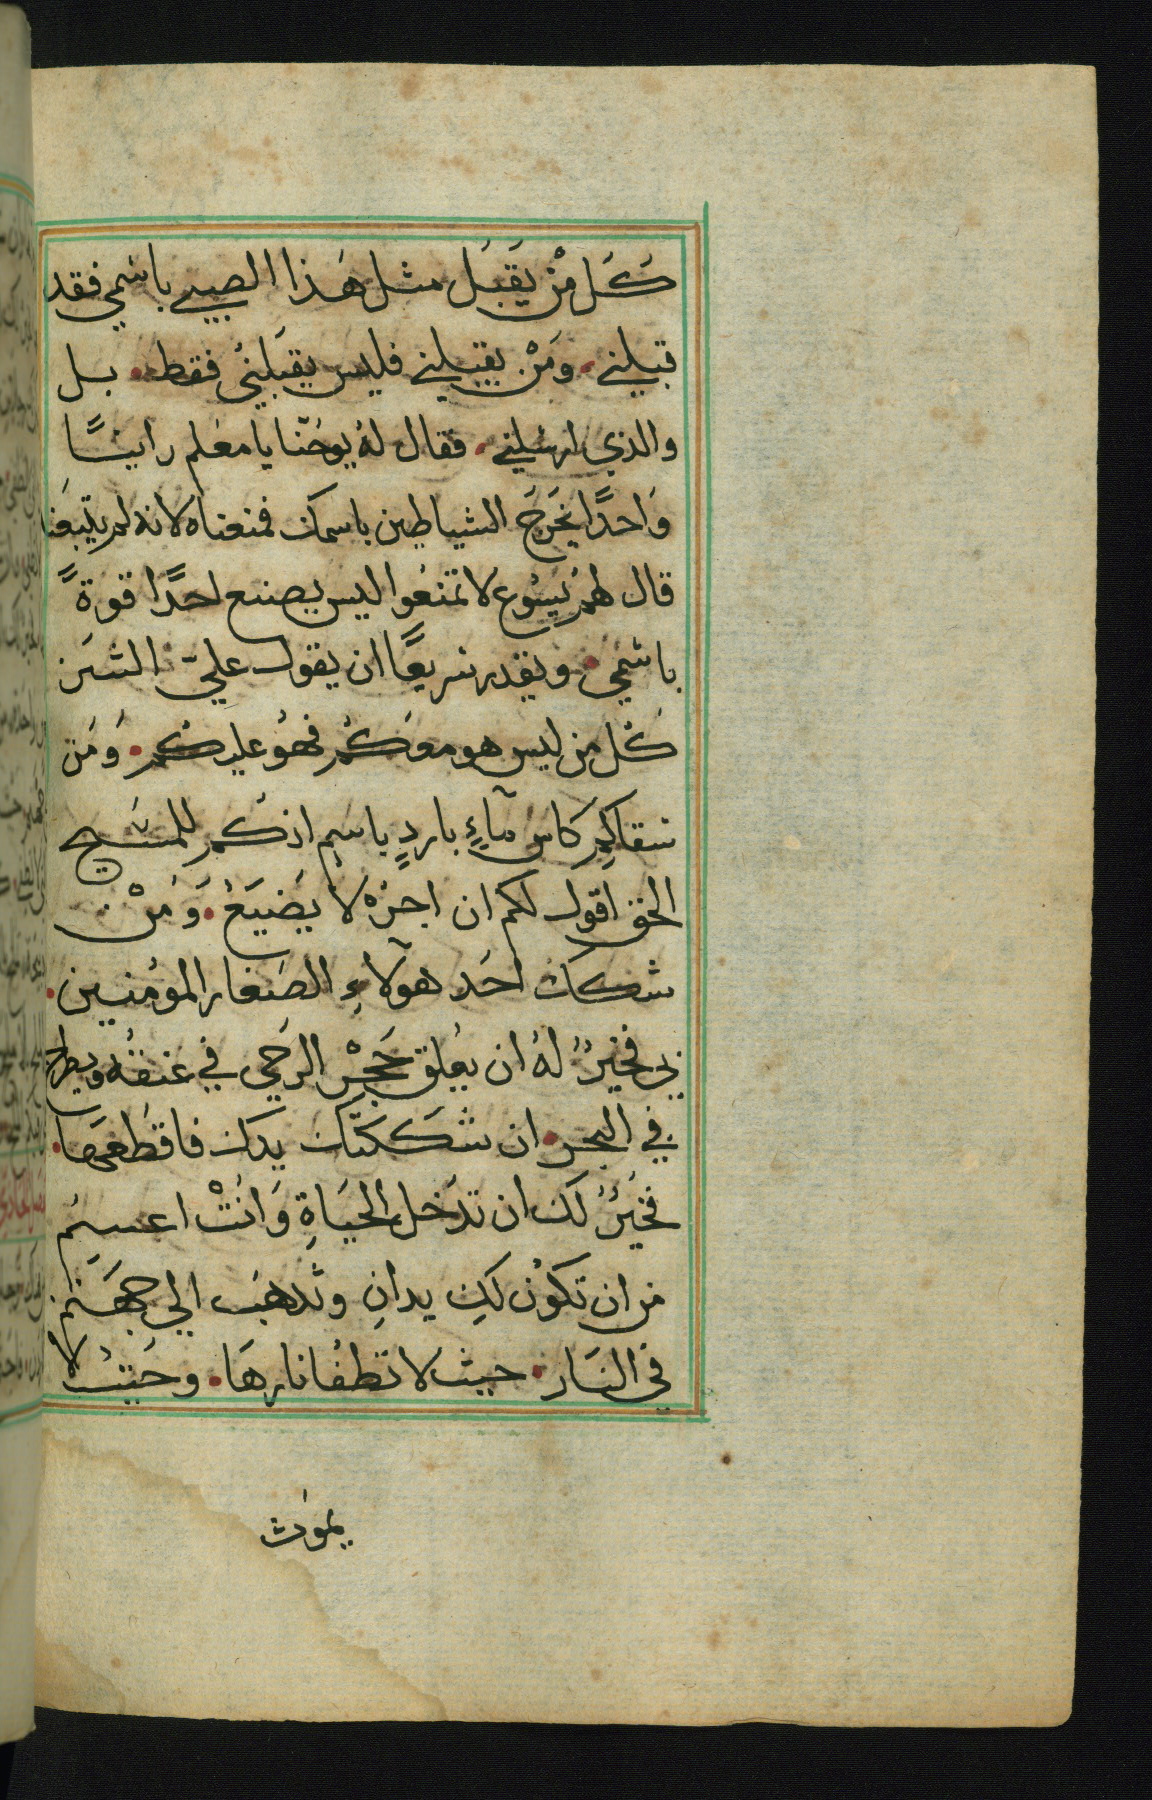 كَل مَنْ يَقبَل مثل هَذا الصبي باسْمي فقد
قبلني. ومَنْ يقبلني فليس يقبَلنيْ فقط. بل
والذي ارسْلني. فقال لهُ يوحَنّا يا معَلم راينًا
وَاحدًا يخرجَ الشياطين باسمك فمنعناه لانه لم يتبعَنا
قال لهمُ يَسْوع لا تمنعوا ليس يصنع احَدًا قوةً
باسْمي. ويقدر سَريعًا ان يقول عليّ الشَر
كل من ليس هو معَكُم فهوُ عليكُم. وَمَن
سَقاكم كاس مآءٍ باردٍ باسمِ انكُم للمسَيح
الحق اقول لكم ان اجرَه لا يَضيَعُ. وَمَنْ
شكك احَد هولآءِ الصَغار المومْنين.
بي فخيرٌ لهُ ان يعُلق حَجَرْ الرَحي في عَنقه ويطرح
في البحر. ان شَككَتك يدك فاقطَعَها.
فخَيرٌ لك ان تدَخل الحَيَاةِ وَانتْ اعسمُ
من ان تكوْن لكِ يدانِ وتذهبَ الي جهَنمَ
في النَار. حيث لا تطفُا نارهَا. وحَيثُ لا
يموت